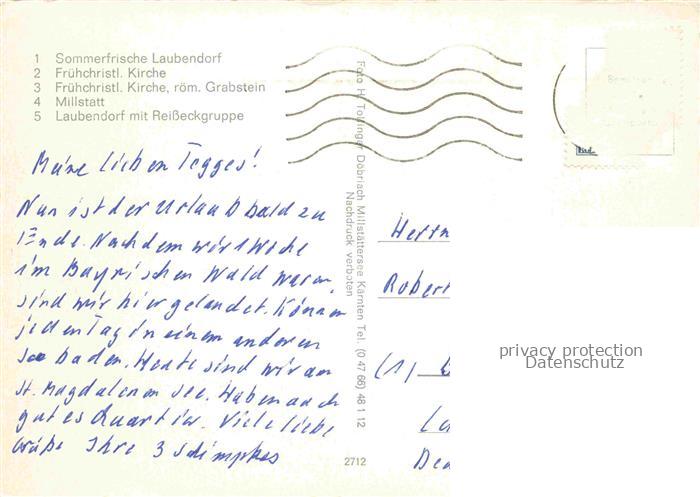 1 Sommerfrische Laubendorf
2 Frühchristl. Kirche
3 Frühchristl. Kirche, röm. Grabstein
4 Millstatt
5 Laubendorf mit Reißeckgruppe
Meine lieben Tegges!
Nun ist der Urlaub bald zu
Ende. Nachdem wir 1 Woche
im Bayrischen Wald waren,
sind wir hier gelandet. Können
jeden Tag in einem anderen
See baden. Heute sind wir am
St. Magdalenen See. Haben auch
gutes Quartier. Viele liebe
Grüße Ihre 3 Schimpkes
Foto H. Tollinger Döbriach Millstättersee Kärnten Tel. (0 47 66) 48 1 12
Nachdruck verboten
2712
Herrn
Robert
(1)
privacy protection
Datenschutz